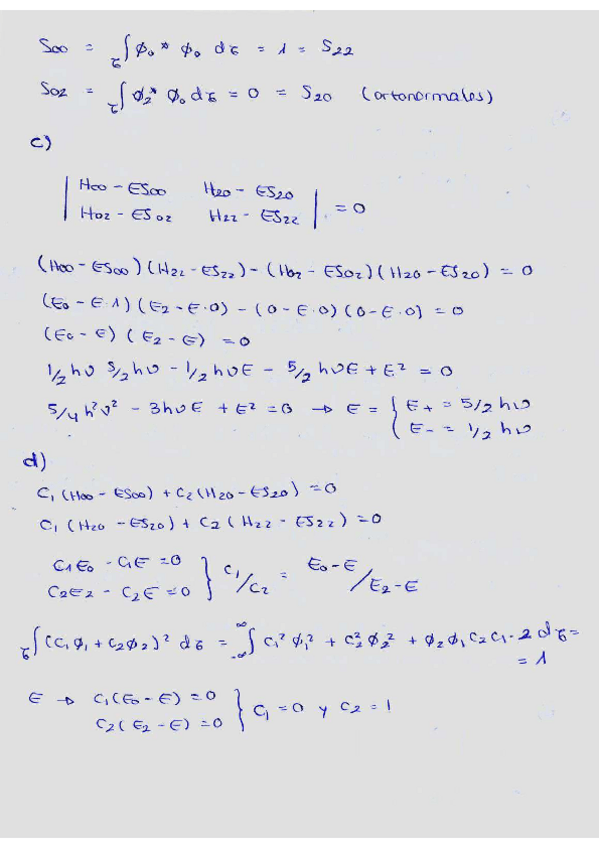 S00 = τ∫ϕ0* ϕ0 dτ = 1 = S22
S02 = τ∫ϕ2* ϕ0 dτ = 0 = S20 (ortonormales)
c)
| H00 - ES00 H20 - ES20 |
| H02 - ES02 H22 - ES22 | = 0
(H00 - ES00)(H22 - ES22) - (H02 - ES02)(H20 - ES20) = 0
(E0 - E·1)(E2 - E·0) - (0 - E·0)(0 - E·0) = 0
(E0 - E)(E2 - E) = 0
1/2 hν 5/2 hν - 1/2 hνE - 5/2 hνE + E² = 0
5/4 h²ν² - 3hνE + E² = 0 → E = { E+ = 5/2 hν
E- = 1/2 hν
d)
C1 (H00 - ES00) + C2 (H20 - ES20) = 0
C1 (H20 - ES20) + C2 (H22 - ES22) = 0
C1E0 - C1E = 0
C2E2 - C2E = 0 } C1/C2 = E0 - E / E2 - E
τ∫(C1ϕ1 + C2ϕ2)² dτ = ∫ C1²ϕ1² + C2²ϕ2² + ϕ2ϕ1C2C1·2 dτ =
= 1
E → C1(E0 - E) = 0
C2(E2 - E) = 0 } C1 = 0 y C2 = 1